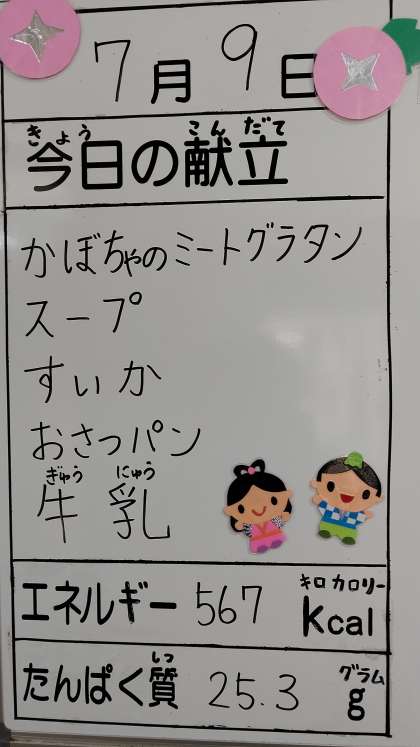 7月9日
きょう こんだて
今日の献立
かぼちゃのミートグラタン
スープ
すいか
おさつパン
ぎゅう にゅう
牛乳
キロカロリー
エネルギー 567 kcal
しつ グラム
たんぱく質 25.3 g